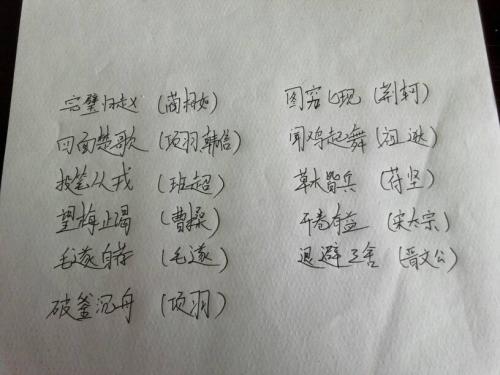 完璧归赵（蔺相如）
四面楚歌（项羽韩信）
投笔从戎（班超）
望梅止渴（曹操）
毛遂自荐（毛遂）
破釜沉舟（项羽）
图穷匕现（荆轲）
闻鸡起舞（祖逖）
草木皆兵（苻坚）
开卷有益（宋太宗）
退避三舍（晋文公）